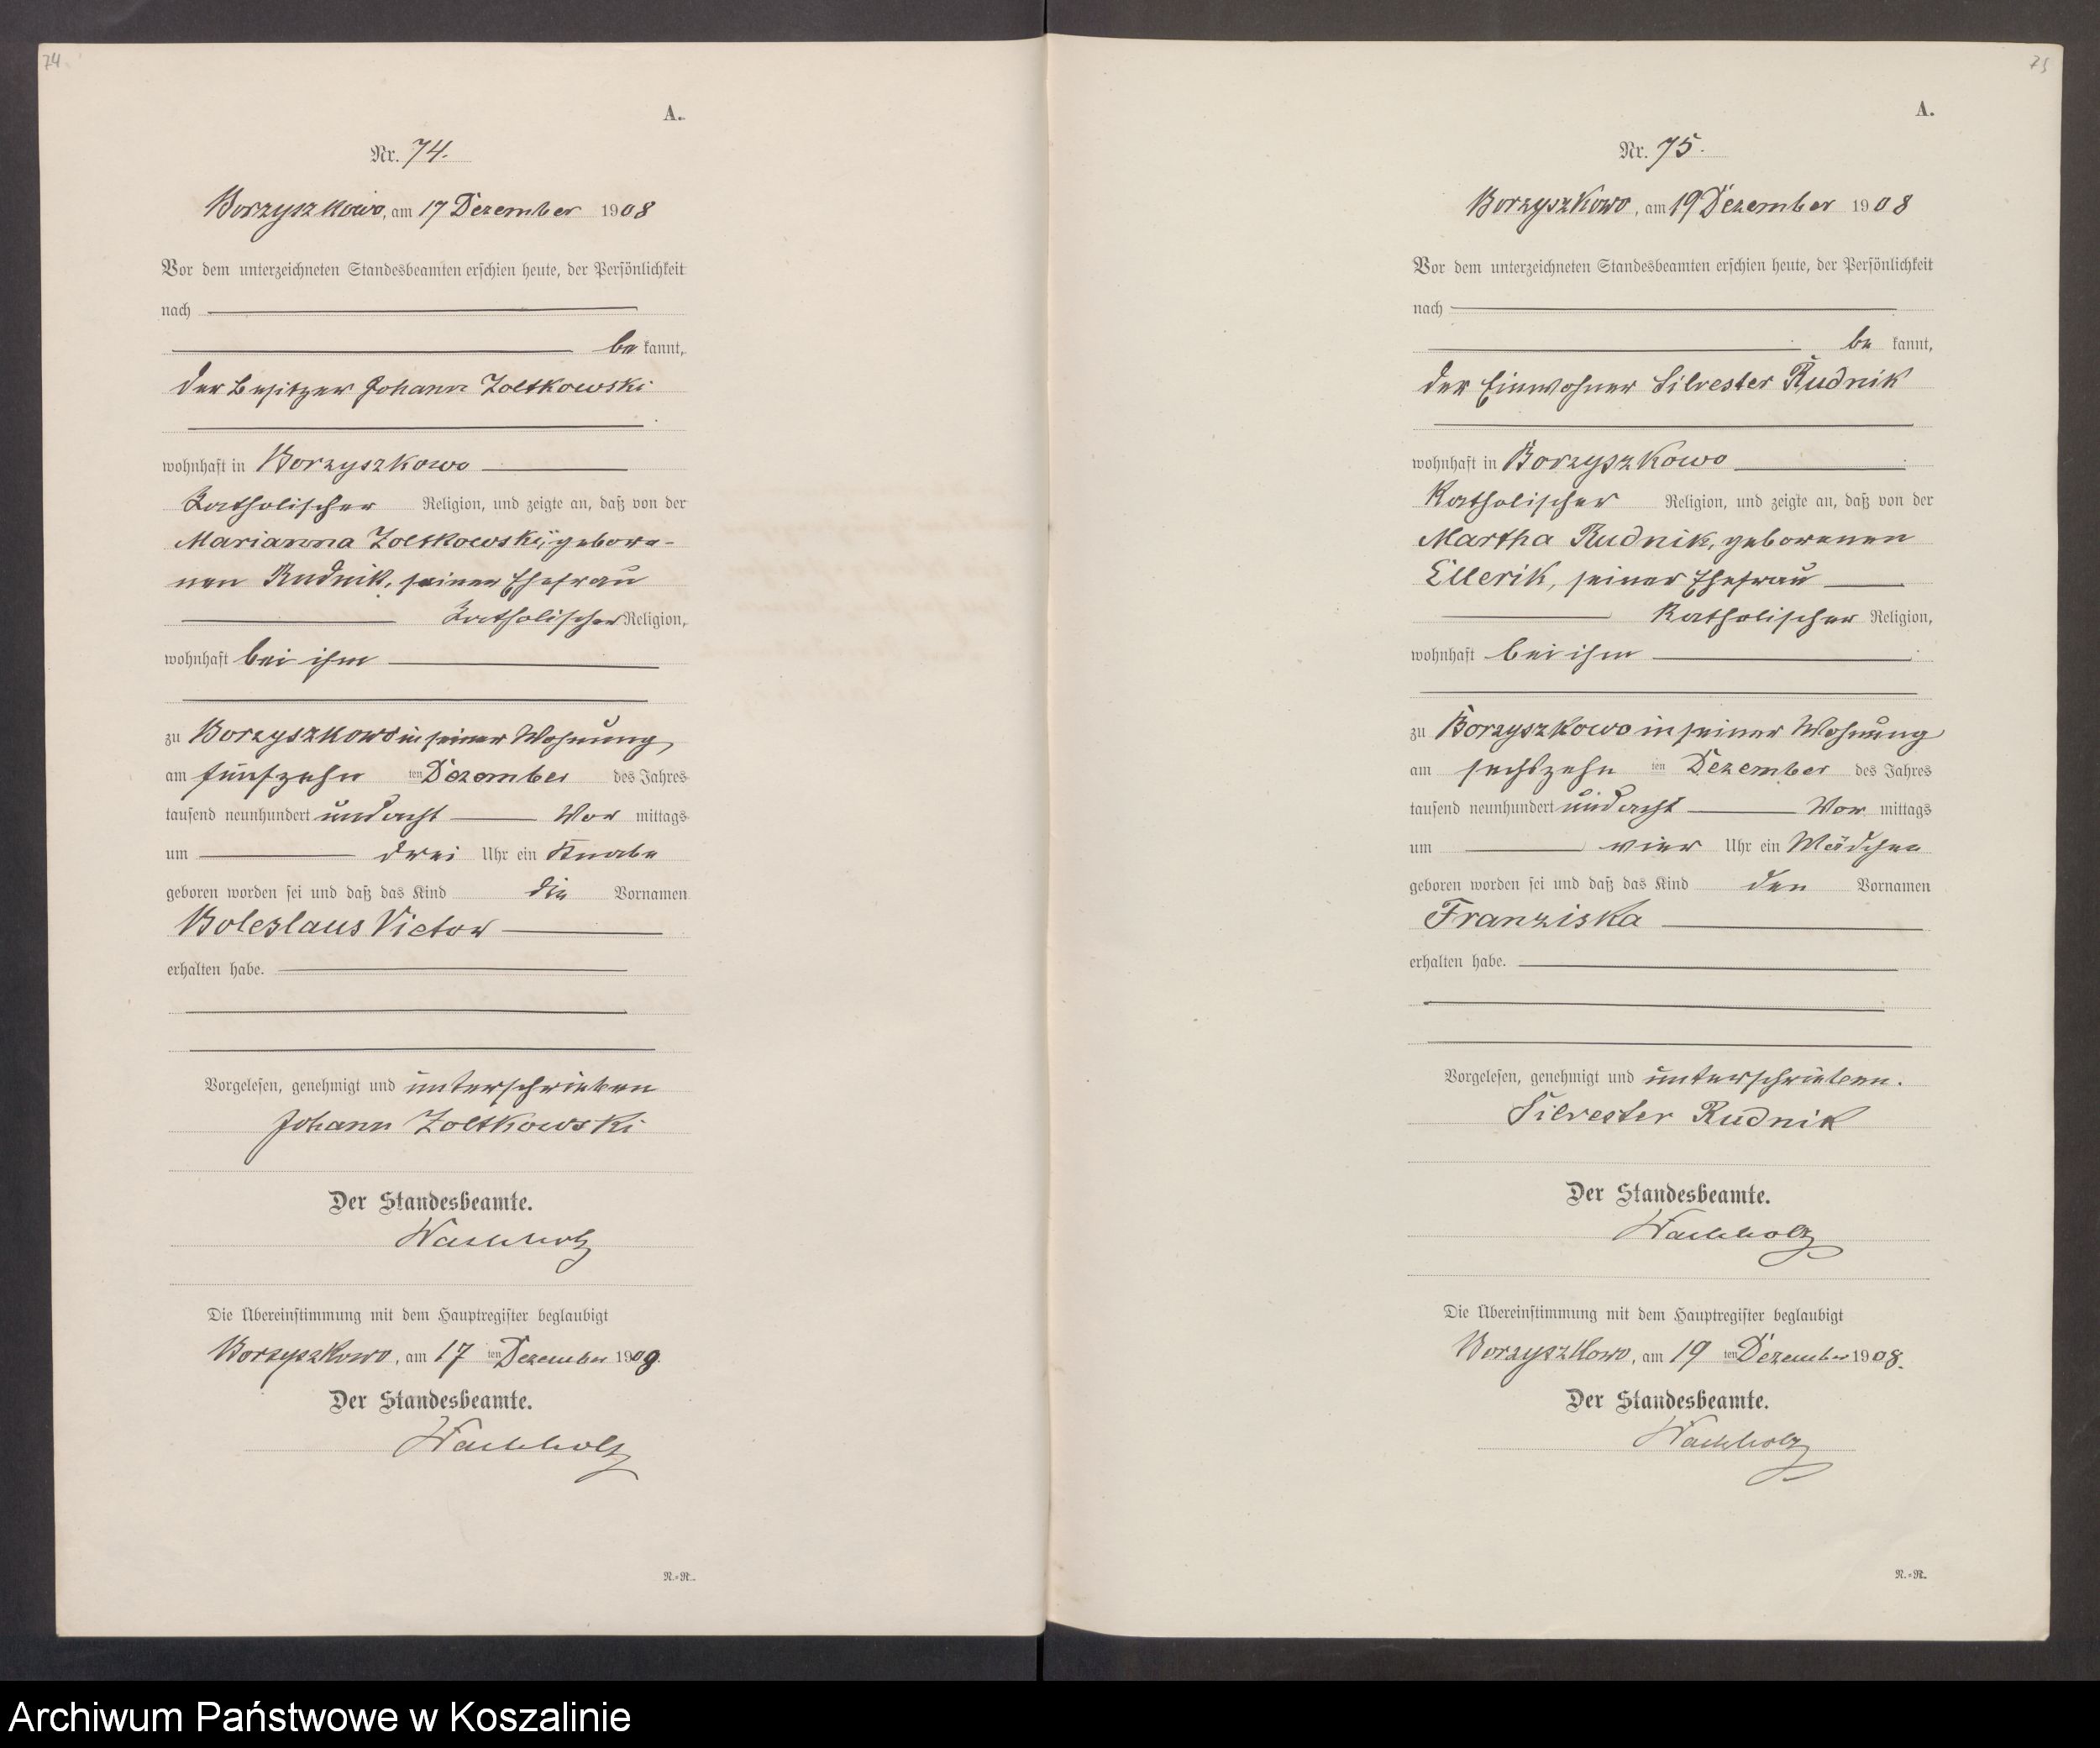 74.
A.
Nr. 74.
Borzyszkowo, am 17 Dezember 1908
Vor dem unterzeichneten Standesbeamten erschien heute, der Persönlichkeit
nach
be kannt,
der Besitzer Johann Zoltkowski
wohnhaft in Borzyszkowo
Katholischer Religion, und zeigte an, daß von der
Marianna Zoltkowski, gebore-
nen Rudnik, seiner Ehefrau
Katholischer Religion,
wohnhaft bei ihm
zu Borzyszkowo in seiner Wohnung
am fünfzehn ten Dezember des Jahres
tausend neunhundert und acht Vor mittags
um drei Uhr ein Knabe
geboren worden sei und daß das Kind die Vornamen
Boleslaus Victor
erhalten habe.
Vorgelesen, genehmigt und unterschrieben
Johann Zoltkowski
Der Standesbeamte.
Wachholz
Die Übereinstimmung mit dem Hauptregister beglaubigt
Borzyszkowo, am 17 ten Dezember 1908.
Der Standesbeamte.
Wachholz
N.=R.
75
A.
Nr. 75.
Borzyszkowo, am 19 Dezember 1908
Vor dem unterzeichneten Standesbeamten erschien heute, der Persönlichkeit
nach
be kannt,
der Einwohner Silvester Rudnik
wohnhaft in Borzyszkowo
Katholischer Religion, und zeigte an, daß von der
Martha Rudnik, geborenen
Ellerik, seiner Ehefrau
Katholischer Religion,
wohnhaft bei ihm
zu Borzyszkowo in seiner Wohnung
am sechszehn ten Dezember des Jahres
tausend neunhundert und acht Vor mittags
um vier Uhr ein Mädchen
geboren worden sei und daß das Kind den Vornamen
Franziska
erhalten habe.
Vorgelesen, genehmigt und unterschrieben.
Silvester Rudnik
Der Standesbeamte.
Wachholz
Die Übereinstimmung mit dem Hauptregister beglaubigt
Borzyszkowo, am 19 ten Dezember 1908.
Der Standesbeamte.
Wachholz
N.=R.
Archiwum Państwowe w Koszalinie